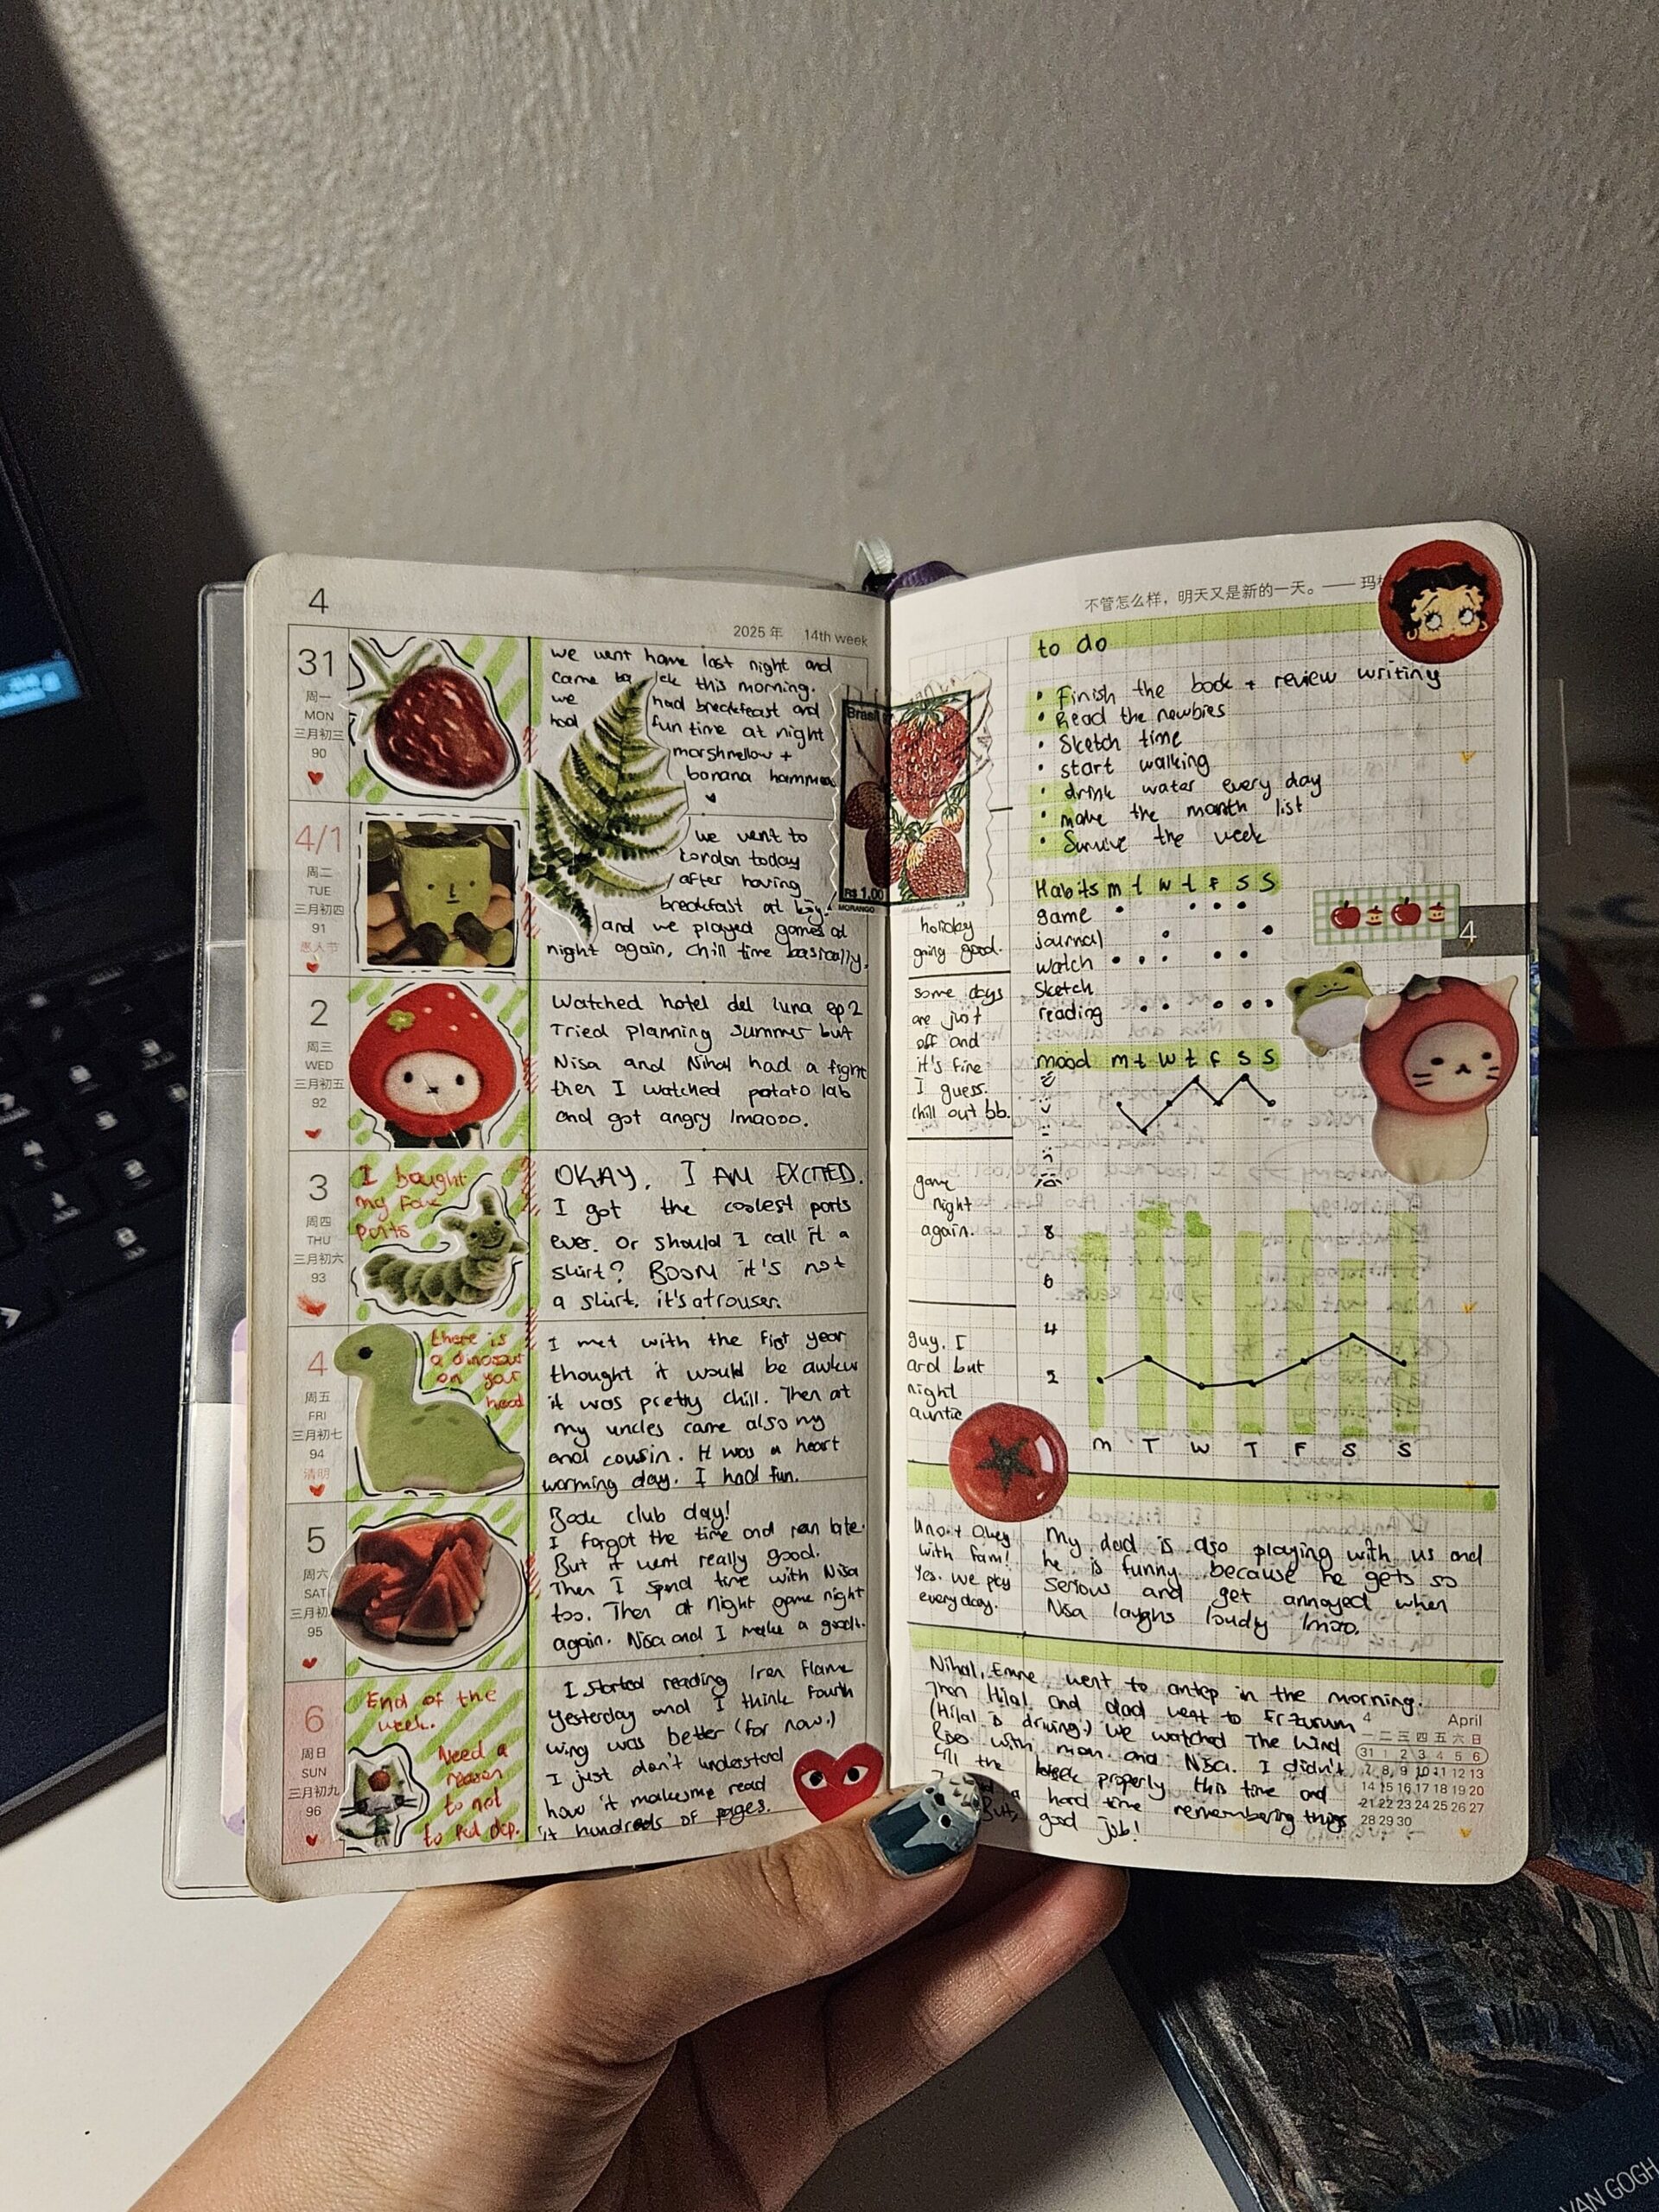 4
2025 年 14th week
31
周一
MON
三月初三
90
we went home last night and
came back this morning.
we had breckfeast and
had fun time at night
marshmellow +
banana hammm
4/1
周二
TUE
三月初四
91
愚人节
we went to
today
after having
breakfast at
and we played games at
night again, chill time basically.
2
周三
WED
三月初五
92
Watched hotel del luna ep 2
Tried planning summer but
Nisa and Nihal had a fight
then I watched potato lab
and got angry lmaooo.
3
周四
THU
三月初六
93
I bought
my fav
pants
OKAY, I AM EXCITED.
I got the coolest pants
ever. Or should I call it a
skirt? BOOM it's not
a skirt. it's a trouser.
4
周五
FRI
三月初七
94
清明
there is
a dinosaur
on your
head
I met with the first year
thought it would be awkw
it was pretty chill. Then at
my uncles came also my
and cousin. It was a heart
warming day. I had fun.
5
周六
SAT
三月初
95
Book club day!
I forgot the time and ran late.
But it went really good.
Then I spend time with Nisa
too. Then at night game night
again. Nisa and I make a good t.
6
周日
SUN
三月初九
96
End of the
week.
Need a
reason
to not
to
I started reading Iron flame
yesterday and I think fourth
wing was better (for now.)
I just don't understand
how it makes me read
it hundreds of pages.
Brasil
R$ 1,00
MORANGO
不管怎么样，明天又是新的一天。—— 玛
to do
• Finish the book + review writing
• Read the newbies
• Sketch time
• start walking
• drink water every day
• make the month list
• Survive the week
Habits m t w t F S S
game
journal
watch
sketch
reading
4
mood m t w t F S S
8
6
4
2
M T W T F S S
holiday
going good.
some days
are just
off and
it's fine
I guess.
chill out bb.
game
night
again.
guy. I
ard but
night
auntie
Uno + Okey
with fam!
Yes. We play
everyday.
My dad is also playing with us and
he is funny because he gets so
serious and get annoyed when
Nisa laughs loudly lmao.
Nihal, Emre went to antep in the morning.
Then Hilal and dad went to Erzurum
(Hilal is driving.) We watched The Wind
Rises with mom and Nisa. I didn't
fill the week properly this time and
a hard time remembering things
But, good job!
4 April
一 二 三 四 五 六 日
31 1 2 3 4 5 6
7 8 9 10 11 12 13
14 15 16 17 18 19 20
21 22 23 24 25 26 27
28 29 30
VAN GOGH